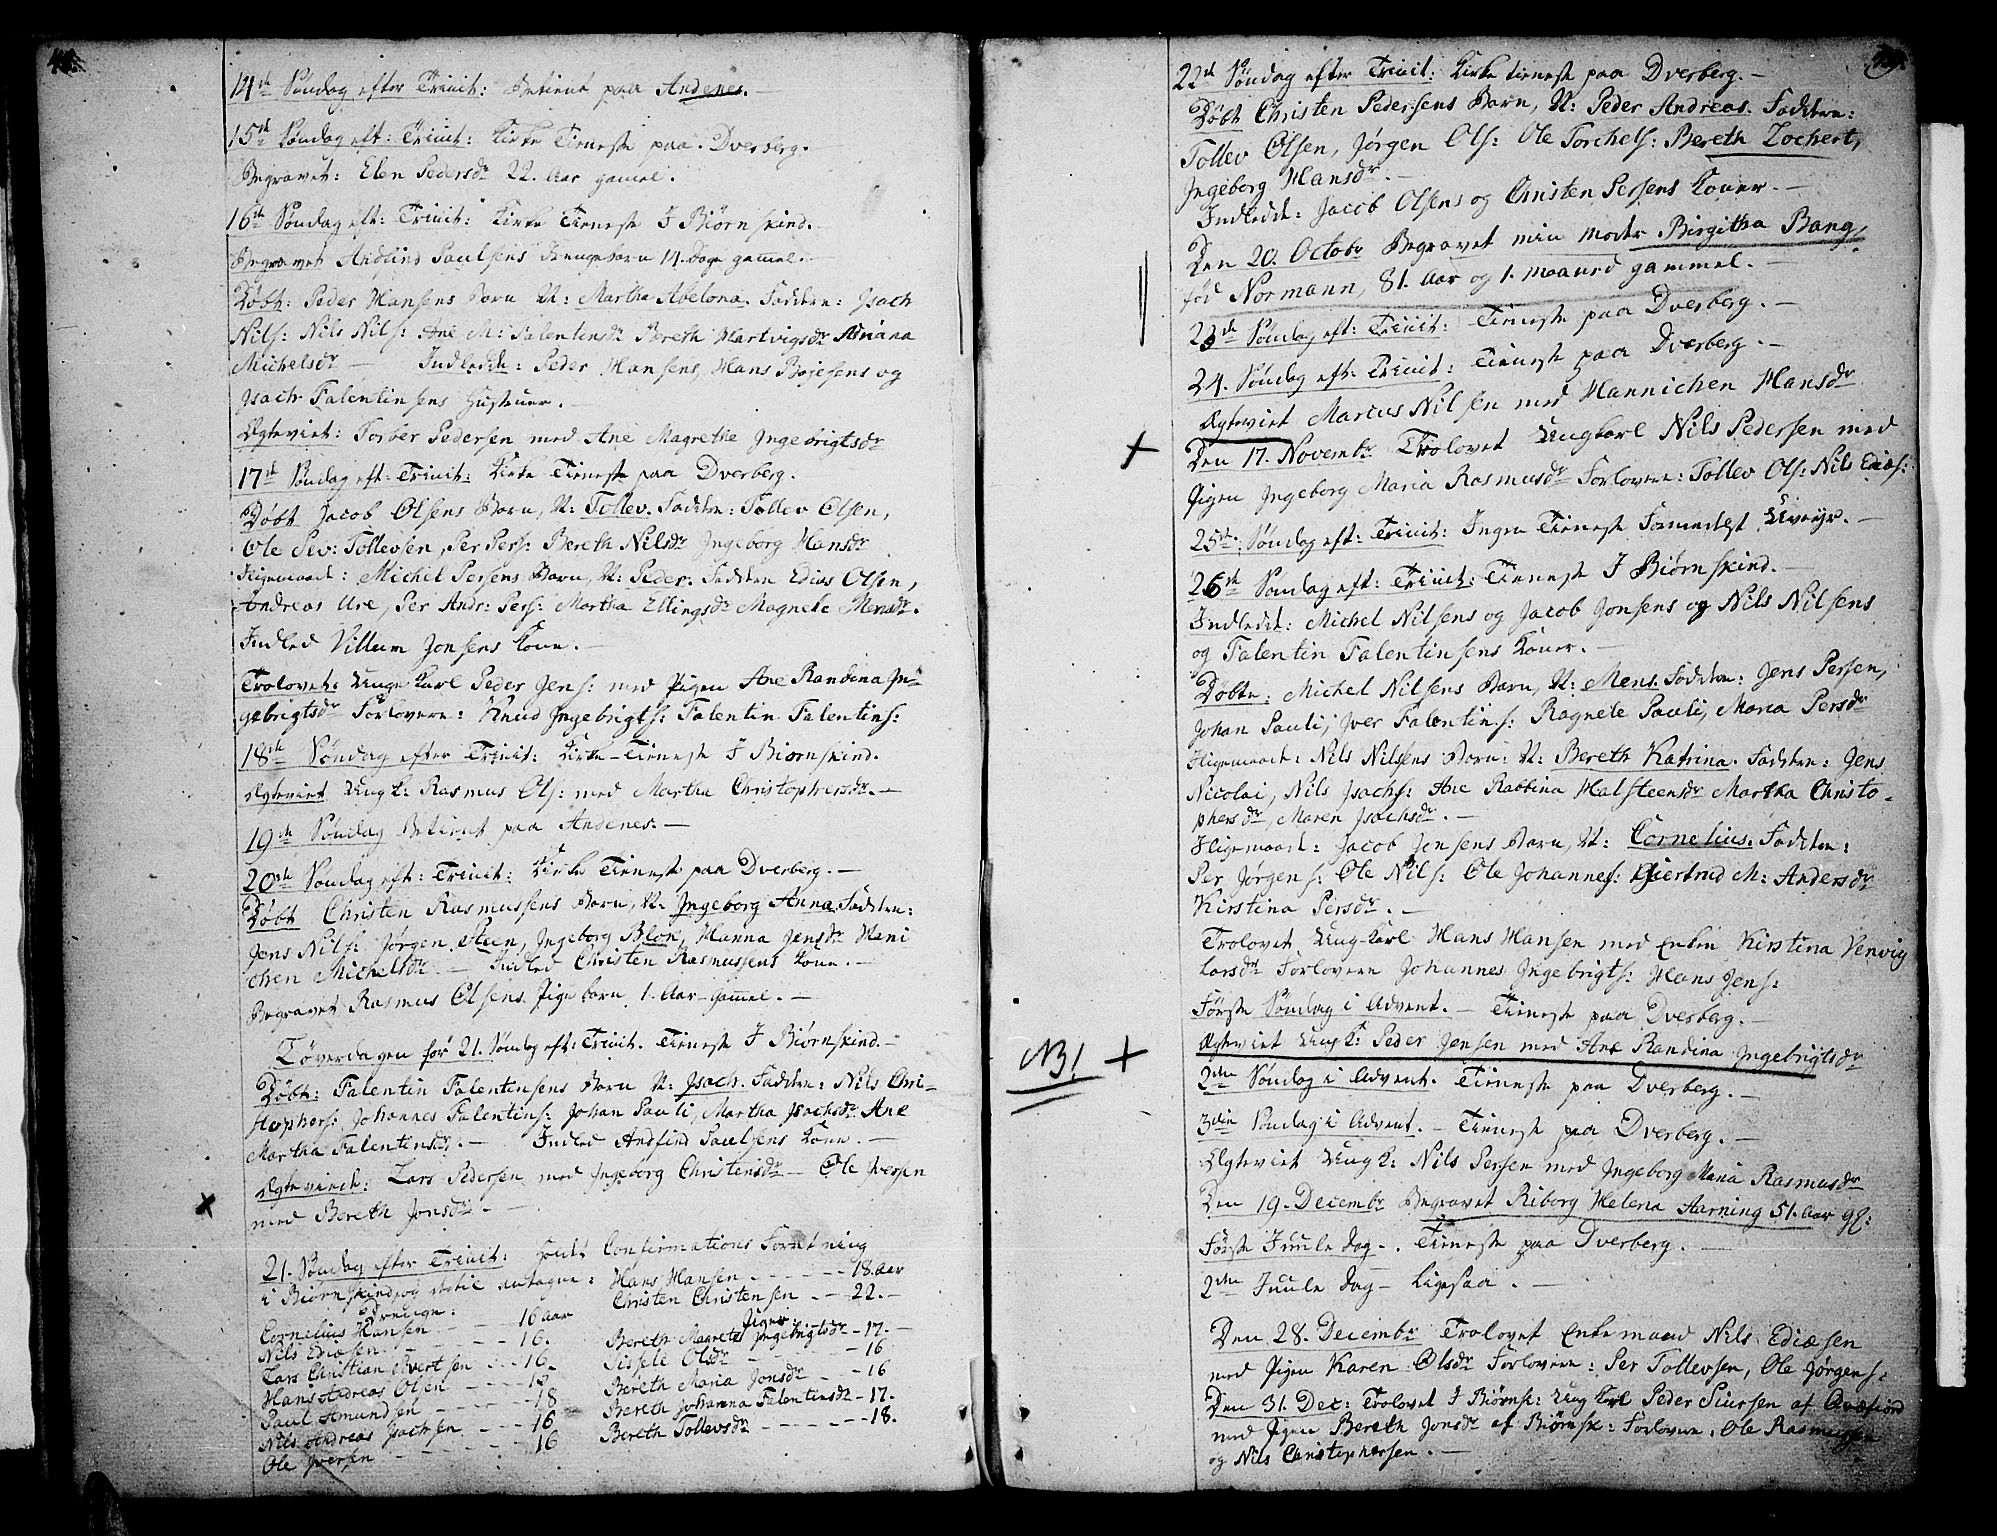 14de Søndag efter Trinit: Betient paa Andenes.
15de Søndag eft: Trinit: Kirke Tieneste paa Dverberg.
Begravet: Elen Pedersdr 22. Aar gamel.
16de Søndag eft: Trinit: Kirke Tieneste I Biørnskind.
Begravet Andfind Paulsens Drengebarn 14. Dage gamel.
Døbt: Peder Hansens Barn N: Martha Abelona. Fadderne: Jsach
Nils: Nils Nils: Ane M: Falentinsdr Bereth Hartvigsdr Adriana
Michelsdr — Indledde: Peder Hansens, Hans Bojesens og
Jsach Falentinsens Hustruer.
Egteviet: Torber Pedersen med Ane Magrethe Jngebrigtsdr
17de Søndag eft: Trinit: Kirke Tieneste paa Dverberg.
Døbt Jacob Olsens Barn, N: Tollev. Fadderne: Tollev Olsen,
Ole Sev: Tollevsen, Per Pers: Bereth Nilsdr Jngeborg Hansdr
Iligemaade: Michel Persens Barn, N: Peder. Fadderne Edias Olsen,
Andreas Ure, Per Andr: Pers: Martha Ellingsdr Magnele Mensdr.
Indled Villum Jonsens Kone.
Trolovet: Unge Karl Peder Jens: med Pigen Ane Randina Jn-
gebrigtsdr Forlovere: Knud Jngebrigts: Falentin Falentins:
18de Søndag efter Trinit: Kirke-Tieneste I Biørnskind.
Egteviet Ung K: Rasmus Ols: med Martha Christophersdr. —
19de Søndag Betient paa Andenes. —
20de Søndag eft: Trinit: Kirke Tieneste paa Dverberg. —
Døbt Christen Rasmussens Barn, N: Jngeborg Anna. Fadderne:
Jens Nils: Jørgen Steen, Jngeborg Blok, Hanna Jensdr Hani
chen Michelsdr — Indled Christen Rasmussens Kone. —
Begravet Rasmus Olsens Pigebarn 1. Aar Gamel. —
Løverdagen før 21. Søndag eft: Trinit. Tieneste I Biørnskind. —
Døbt: Falentin Falentinsens Barn N: Jsach. Fadderne: Nils Chri-
stophers: Johannes Falentins: Johan Pauli, Martha Jsachsdr Ane
Martha Falentinsdr. — Indled Andfind Paulsens Kone. —
Egteviede: Lars Pedersen med Jngeborg Christensdr — Ole Jversen
med Bereth Jonsdr. —
21. Søndag efter Trinit: holdt Confirmations Forretning
i Biørnskind, og dertil antagne: Hans Hansen — 18. Aar
Drenge: Christen Christensen — 22. —
Cornelius Hansen — 16 Aar Piger
Nils Ediæsen — 16. Bereth Magrete Jngebrigtsdr — 17. —
Lars Christian Evertsen — 16. Sissele Olsdr — 16
Hans Andreas Olsen — 15 Bereth Maria Jonsdr — 16
Paul Amundsen — 18 Bereth Johanna Falentinsdr — 17. —
Nils Andreas Jsachsen — 16 Bereth Tollevsdr — 18.
Ole Jversen — 16
22de Søndag efter Trinit: Kirke tieneste paa Dverberg. —
Døbt Christen Pedersens Barn, N: Peder Andreas. Fadderne:
Tollev Olsen, Jørgen Ols: Ole Torchels: Bereth Zochert,
Jngeborg Hansdr. —
Indledde: Jacob Olsens og Christen Persens Koner. —
Den 20. Octobr Begravet min Moder Birgitha Bang,
fød Normann, 81. Aar og 1. maaned gammel. —
23de Søndag eft: Trinit: Tieneste paa Dverberg. —
24. Søndag eft: Trinit: Tieneste paa Dverberg. —
Egteviet Marcus Nilsen med Hannichen Hansdr
Den 17. Novembr Trolovet Ungkarl Nils Pedersen med
Pigen Jngeborg Maria Rasmusdr Forlovere: Tollev Ols: Nils Ediæs:
25de Søndag eft: Trinit: Ingen Tieneste Formedelst Uveyr. —
26de Søndag eft: Trinit: Tieneste I Biørnskind. —
Indledde: Michel Nilsens og Jacob Jonsens og Nils Nilsens
og Falentin Falentinsens Koner. —
Døbte: Michel Nilsens Barn, N: Mens. Fadderne: Jens Persen,
Johan Pauli, Jver Falentins: Ragnele Pauli, Maria Persdr
Iligemaade: Nils Nilsens Barn: N: Bereth Katrina. Fadderne: Jens
Nicolai, Nils Jsachs: Ane Rabbina Halsteensdr Martha Christo-
phersdr, Maren Jsachsdr. —
Iligemaade: Jacob Jonsens Barn, N: Cornelius. Fadderne:
Per Jørgens: Ole Nils: Ole Johannes: Giertrud M: Andersdr
Kirstina Persdr. —
Trolovet Ung-Karl Hans Hansen med Enken Kirstina Venvig
Larsdr Forlovere Johannes Jngebrigts: Hans Jens:
Første Søndag i Advent. — Tieneste paa Dverberg. —
NB! Egteviet Ung K: Peder Jensen med Ane Randina Jngebrigtsdr
2den Søndag i Advent. Tieneste paa Dverberg. —
3die Søndag i Advent. — Tieneste paa Dverberg. —
Egteviet Ung K: Nils Persen med Jngeborg Maria Rasmusdr
Den 19. Decembr Begravet Riborg Helena Aarning 51. Aar gl:
Første Juule Dag —. Tieneste paa Dverberg. —
2den Juule Dag — Ligesaa. —
Den 28. Decembr Trolovet Enkemand Nils Ediæsen
med Pigen Karen Olsdr Forlovere: Per Tollevsen, Ole Jørgens:
Den 31. Dec: Trolovet I Biørnsk: Ung Karl Peder Siursen af Qvæfiord
med Pigen Bereth Jonsdr af Biørnsk: Forlovere, Ole Rasmussen
og Nils Christophersen. —